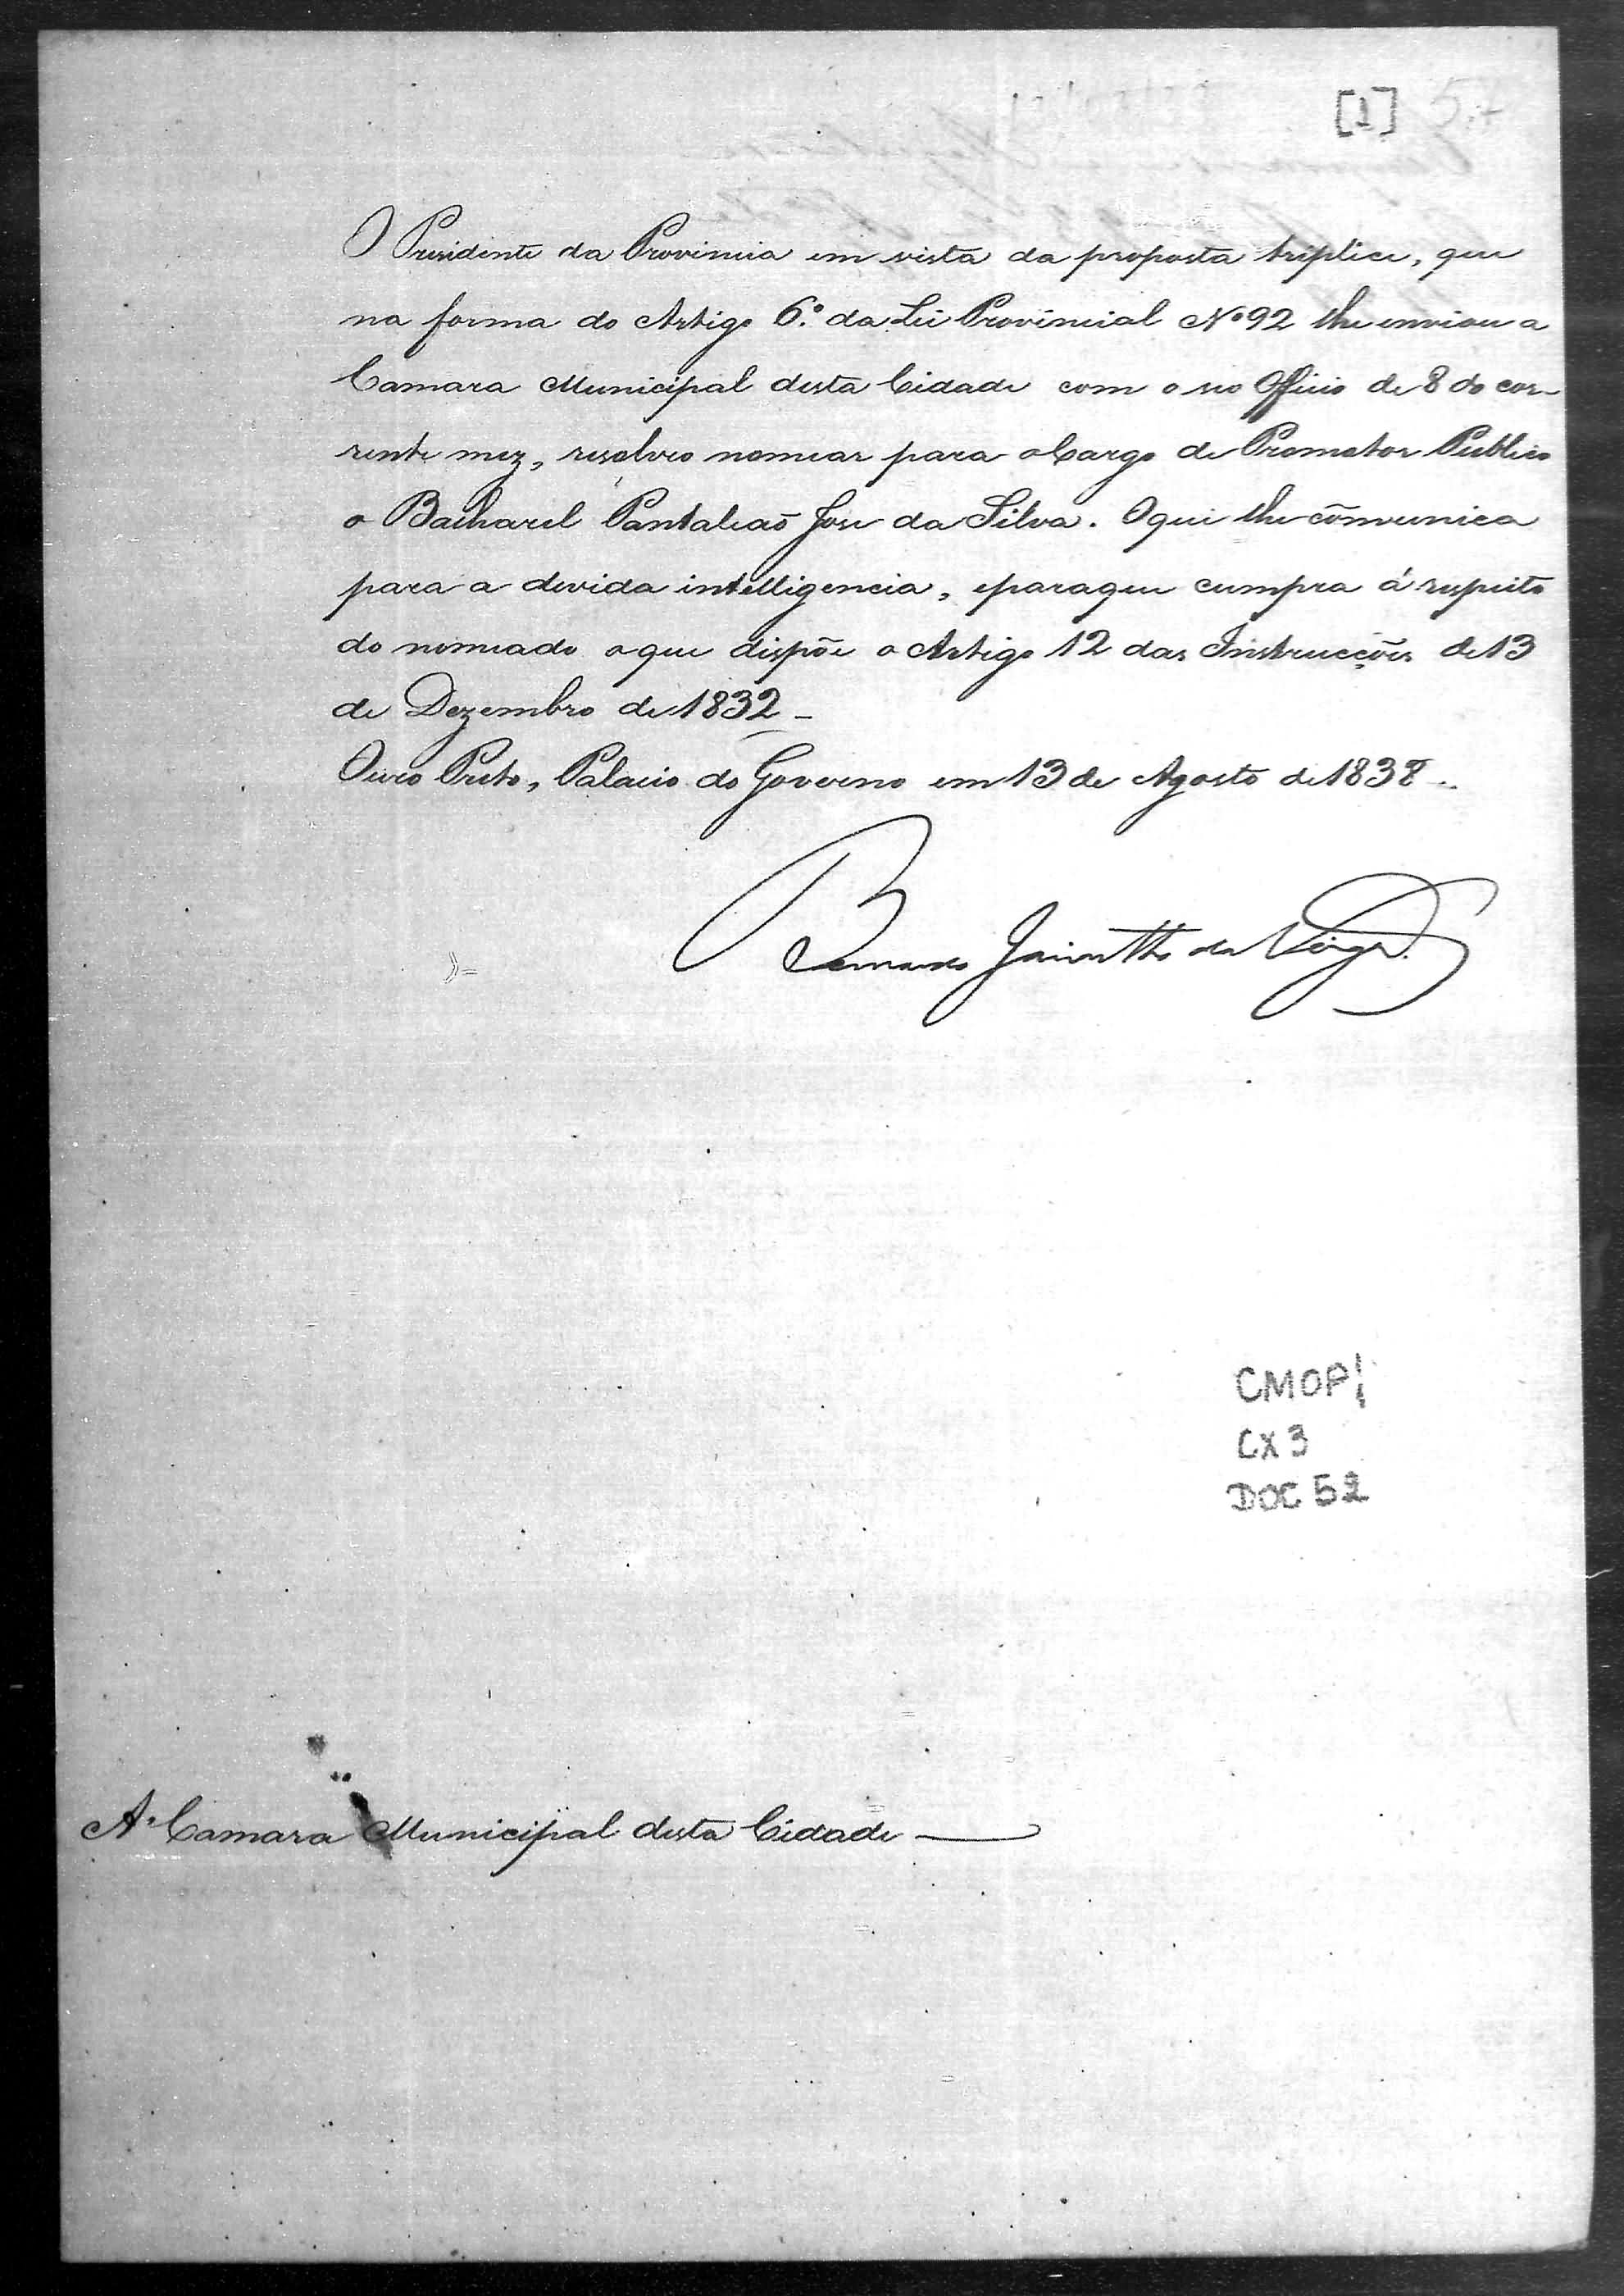 [1] 57
O Presidente da Provincia em vista da proposta triplice, que
na forma do Artigo 6.º da Lei Provincial Nº 92 lhe enviou a
Camara Municipal desta Cidade com o seo Officio de 8 do cor-
rente mez, resolveo nomear para o Cargo de Promotor Publico
o Bacharel Pantaleaõ Jose da Silva. Oque lhe cõmunica
para a devida intelligencia, eparaque cumpra á respeito
do nomeado oque dispõe o Artigo 12 das Instrucções de 13
de Dezembro de 1832_
Ouro Preto, Palacio do Governo em 13 de Agosto de 1838.
Bernardo Jacintho da Veiga.
CMOP/
CX 3
DOC 52
A' Camara Municipal desta Cidade